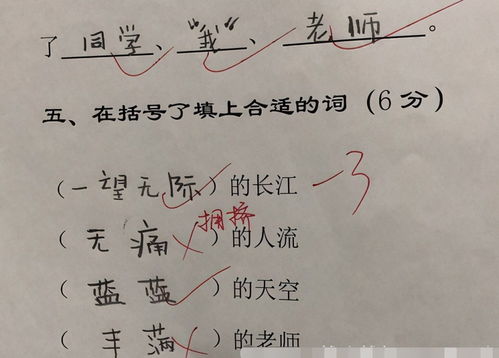 了同学、“我”、老师。
五、在括号了填上合适的词（6分）
（一望无际）的长江 -3
拥挤
（无痛）的人流
（蓝蓝）的天空
（丰满）的老师